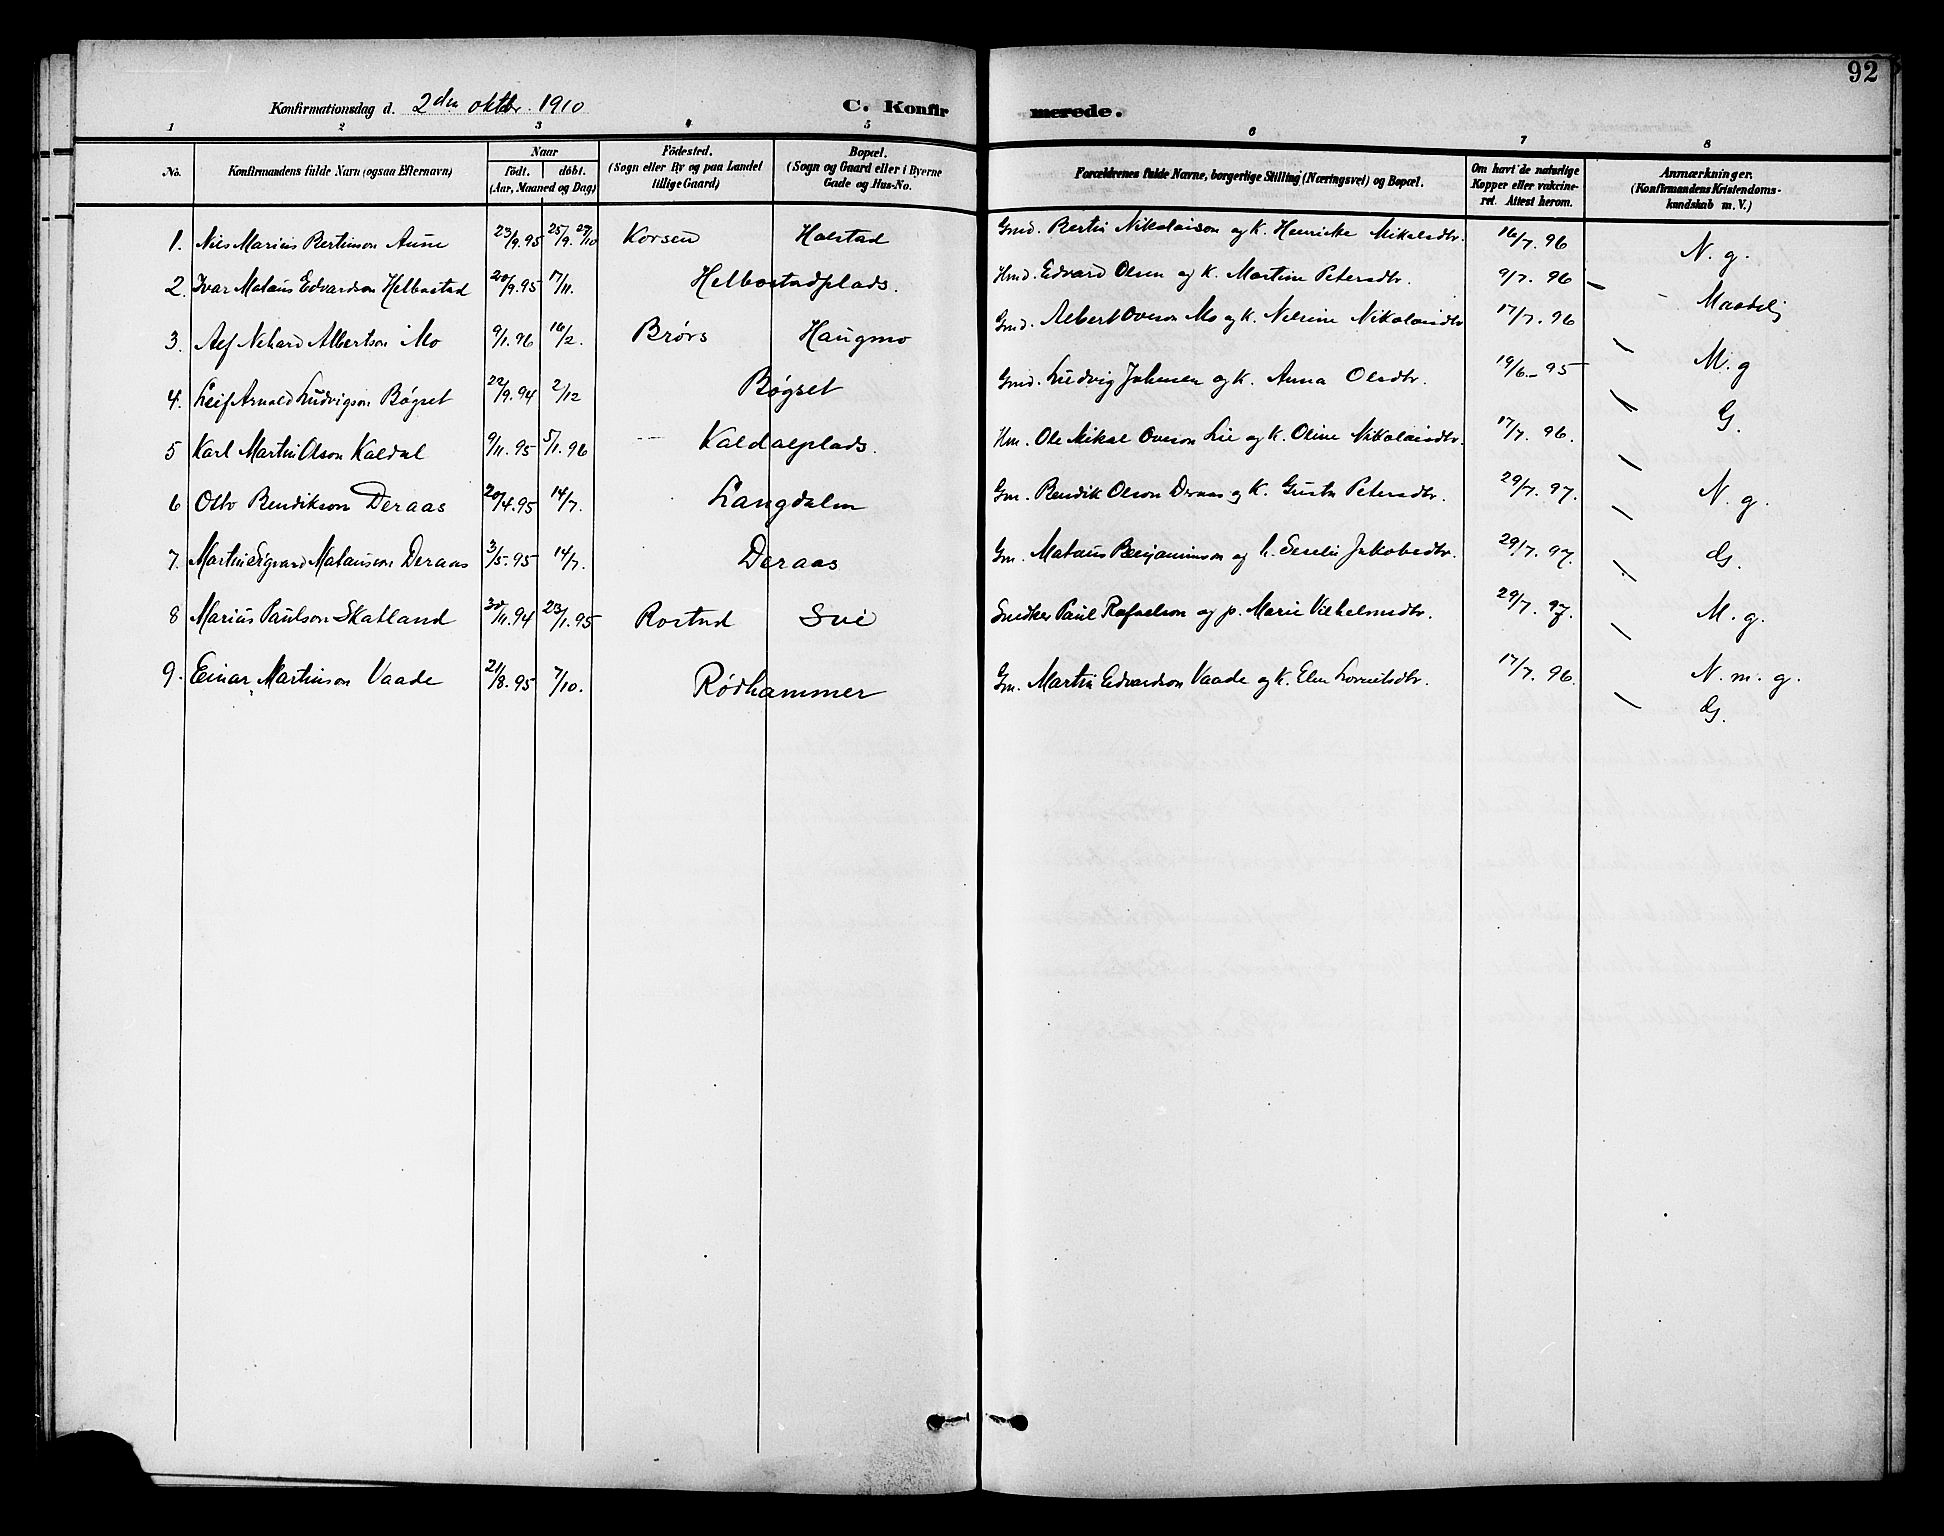 92
Konfirmationsdag d. 2den oktbr. 1910 C. Konfirmerede.
1 2 3 4 5 6 7 8
No. Konfirmandens fulde Navn (ogsaa Efternavn) Naar födt. döbt. (Aar, Maaned og Dag) Födested. (Sogn eller By og paa Landet tillige Gaard) Bopæl. (Sogn og Gaard eller i Byerne Gade og Hus-No. Forældrenes fulde Navne, borgerlige Stilling (Næringsvei) og Bopæl. Om havt de naturlige Kopper eller vakcineret. Attest herom. Anmærkninger. (Konfirmandens Kristendomskundskab m. V.)
1. Nils Marius Bertinson Aune 23/9.95 25/9. 27/10 Korsen Holstad Gmd. Bertin Nikolaison og K. Henrikke Mikalsdtr. 16/7. 96 N. g.
2. Ivar Mataus Edvardson Helbostad 20/9.95 17/11. Helbostadplads. Hmd. Edvard Olsen og K. Martine Petersdtr. 9/7. 96 – Maadelig
3. Alf Albertson Mo 9/1.96 16/2. Brørs Haugmo Gmd. Albert Oveson Mo og K. Nilsine Nikolaisdtr 17/7. 96 M. g
4. Leif Arnold Ludvigson Bøgset 22/9.94 2/12 Bøgset Gmd. Ludvig Johnsen og K. Anna Olsdtr. 19/6– 95 G.
5 Karl Martin Olson Kaldal 9/11.95 5/1.96 Kaldalplads. Hm. Ole Mikal Oveson Lie og K. Oline Nikolaisdtr. 17/7. 96. N. g.
6 Otto Bendikson Deraas 20/4.95 14/7. Langdalen Gm. Bendik Olson Deraas og K. Gusta Petersdtr. 29/7. 97. G.
7. Martin Sigvard Matauson Deraas 3/5.95 14/7. Deraas Gm. Mataus Benjaminson og K. Serelie Jakobsdtr. 29/7. 97. M. g.
8 Marius Paulson Skatland 30/11.94 23/1.95 Rostad Své Snedker Paul Rafaelson og p. Marie Vilhelmsdtr. 29/7. 97. N. m. g.
9. Einar Martinson Vaade 21/8.95 7/10. Rødhammer Gm. Martin Edvardson Vaade og K. Elen Lorntsdtr. 17/7. 96. G.